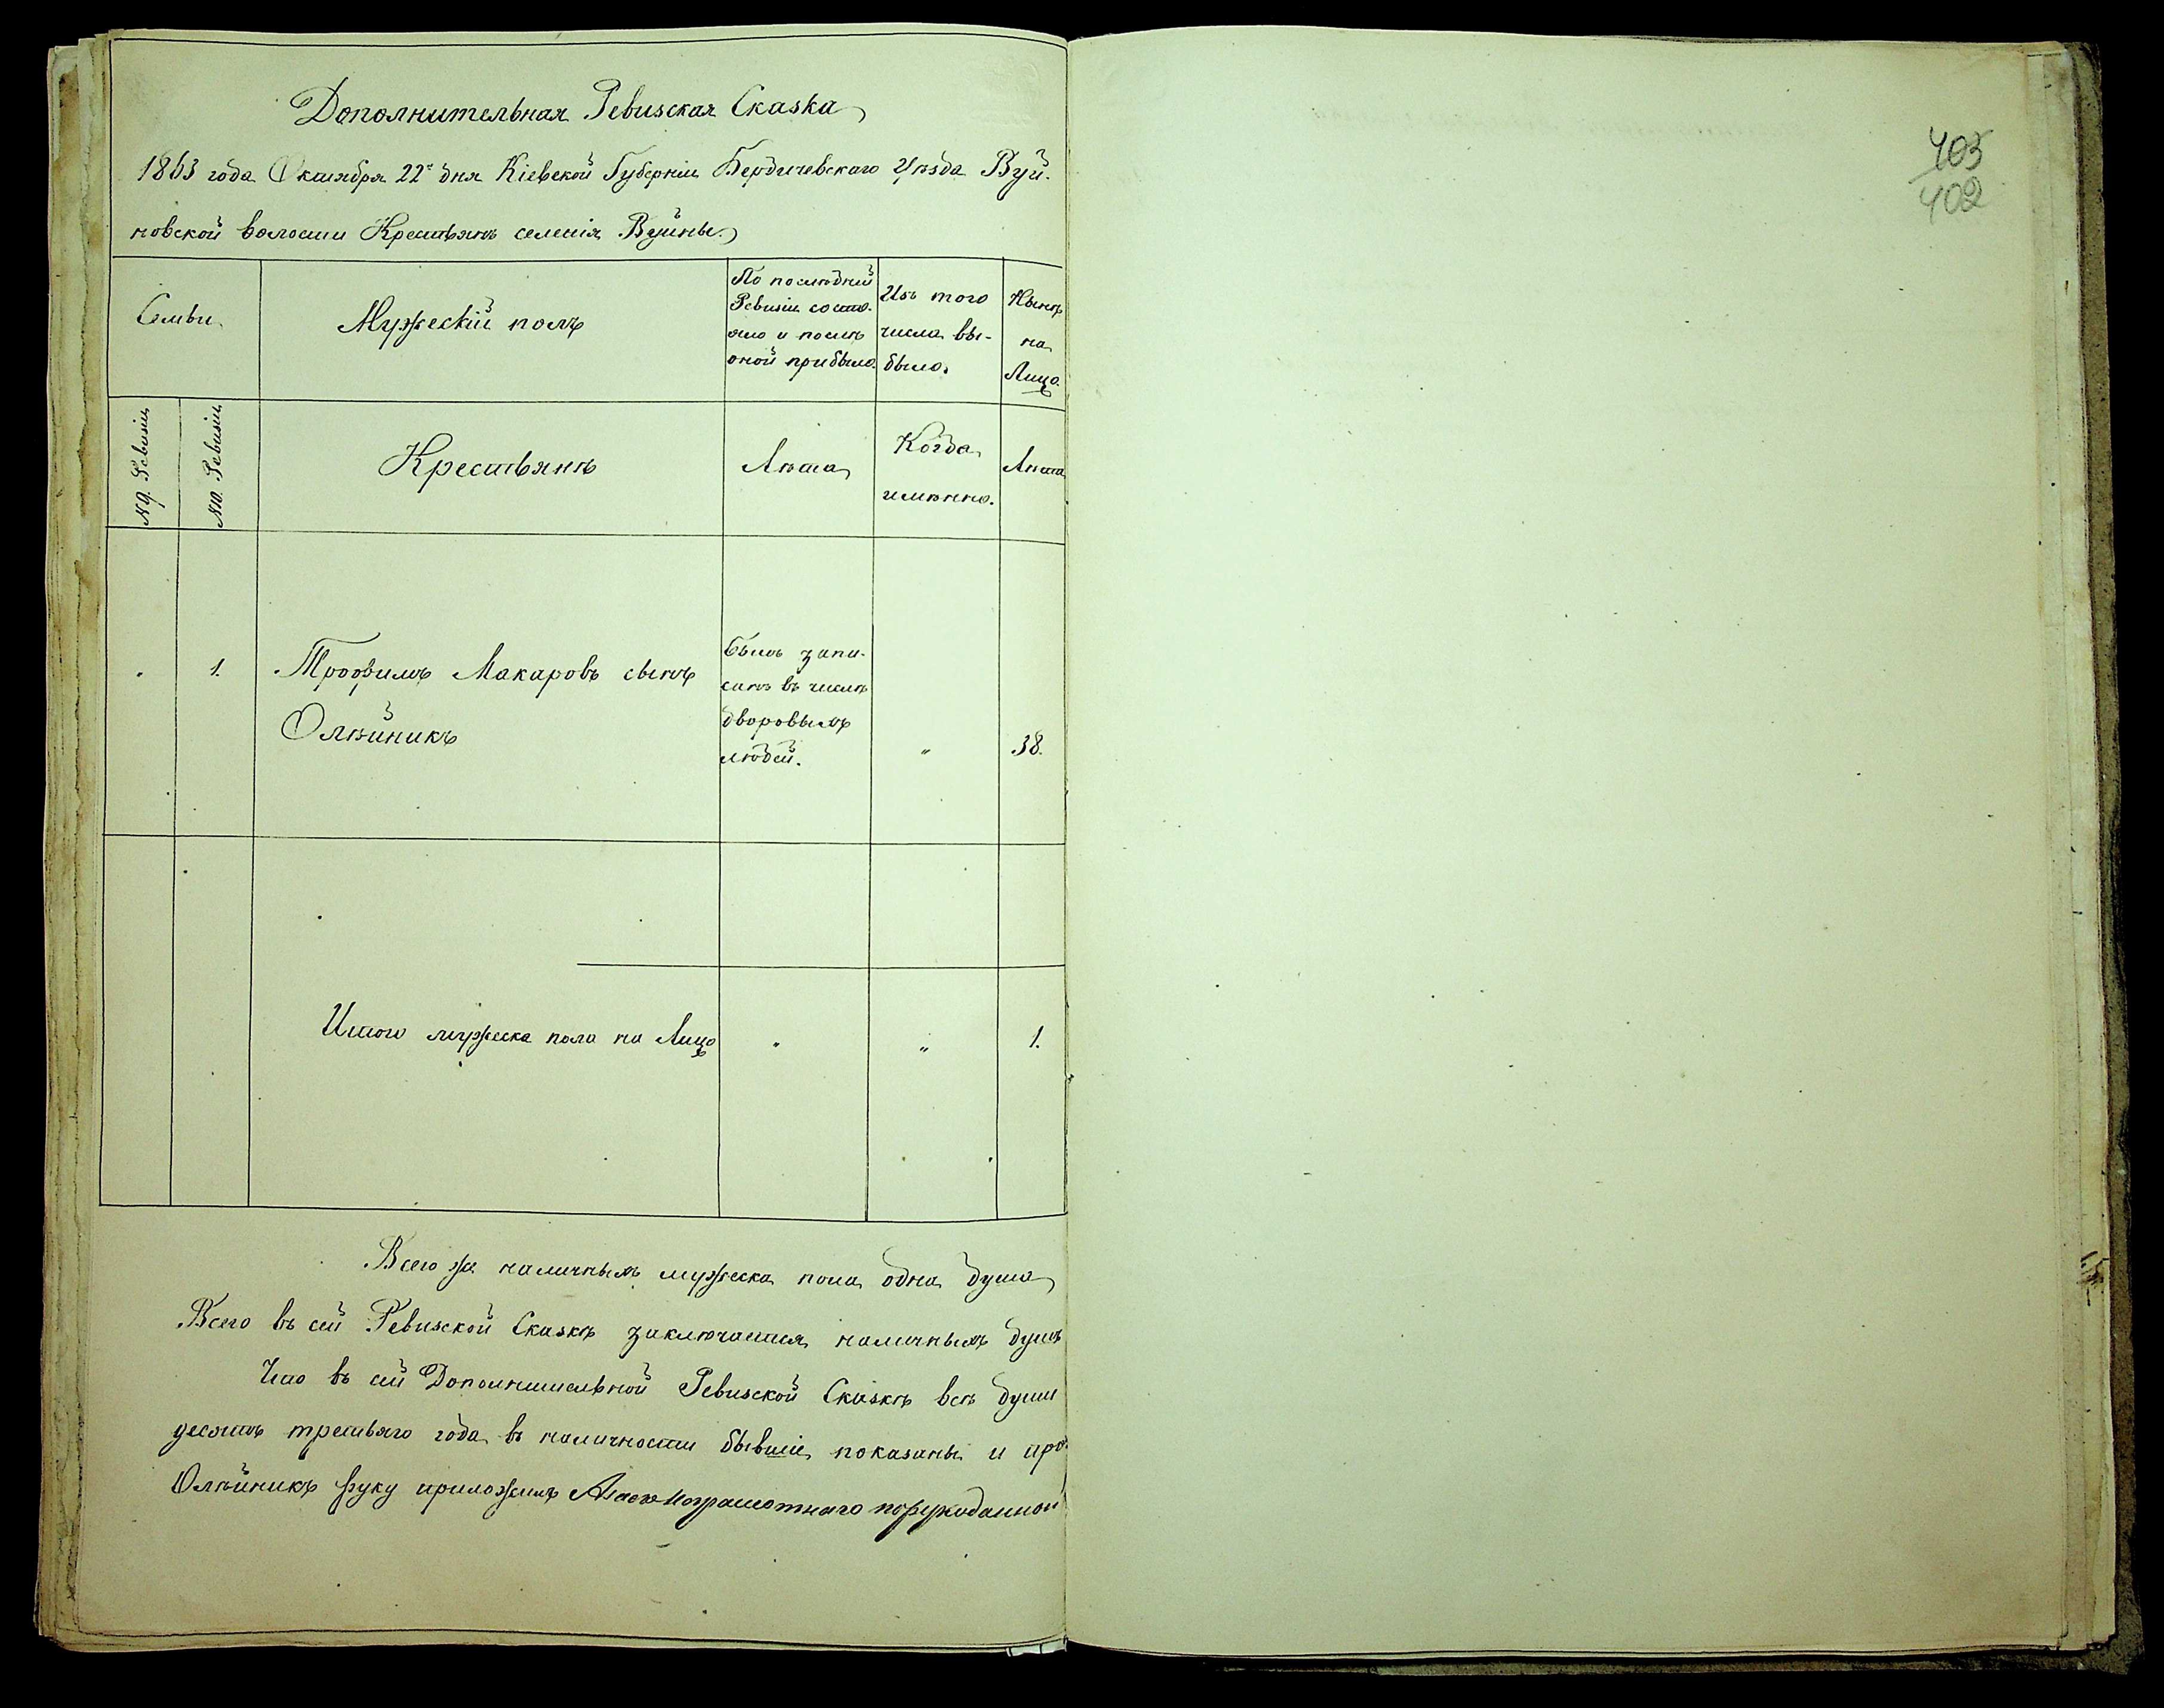 Дополнительная Ревизская Сказка
1863 года Октября 22го дня Кіевской Губерніи Бердичевскаго Уѣзда Вуй-
новской волости Крестьянъ селенія Вуйны.
Семьи.
Мужескій полъ
По послѣдней
Ревизіи состо-
яло и послѣ
оной прибыло.
Изъ того
числа вы-
было.
Нынѣ
на
Лицо.
№ 9. Ревизіи
№ 10. Ревизіи
Крестьянъ
Лѣта
Когда
имѣнно.
Лѣта
1.
Трофимъ Макаровъ сынъ
Олѣйникъ
Былъ запи-
санъ въ числѣ
дворовыхъ
людей.
"
38.
Итого мужеска пола на Лицо
"
"
1.
Всего же наличныхъ мужеска пола одна душа
Всего въ сей Ревизской Сказкѣ заключается наличныхъ душъ
Что въ сей Дополнительной Ревизской Сказкѣ всѣ души
десятъ третьяго года въ наличности бывшіе показаны и про
Олѣйникъ руку приложилъ А за его неграмотнаго по рукоданной
403
402